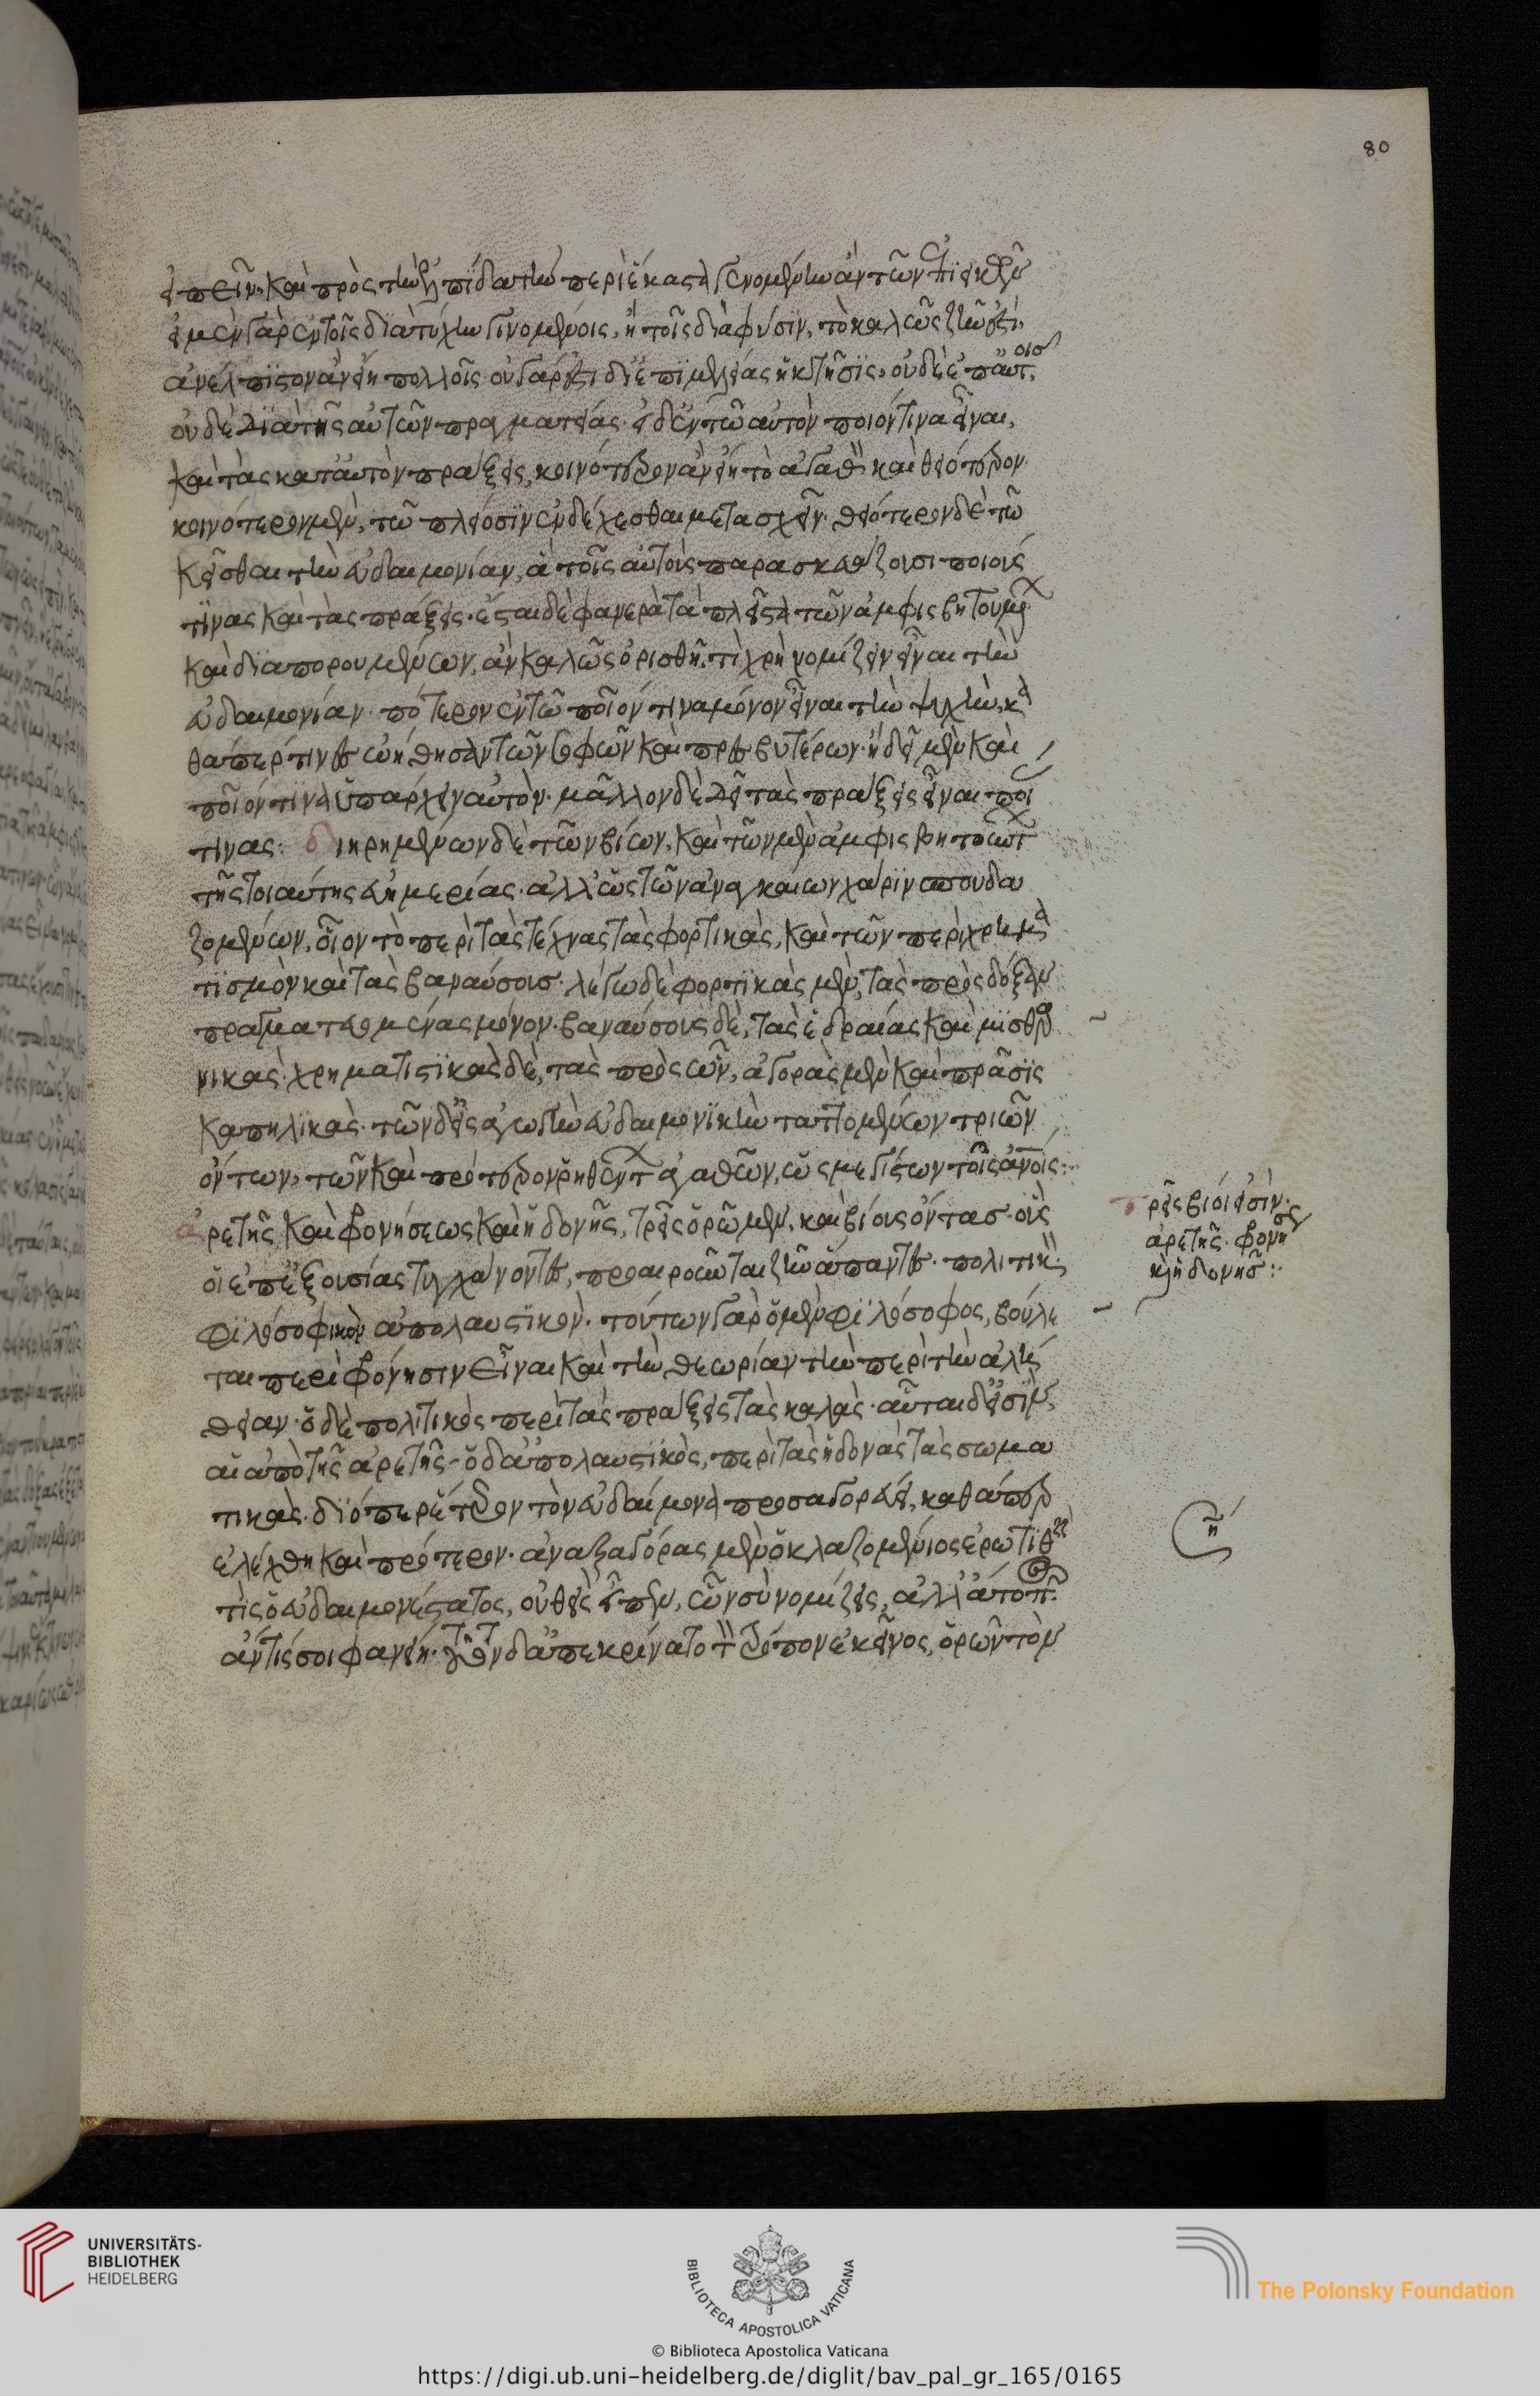 80
εἰπεῖν. καὶ πρὸς τὴν ἐλπίδα τὴν περὶ ἕκαστα γενομένην ἂν τῶν ἐπιεικῶν
εἰ μὲν γὰρ ἐν τοῖς διὰ τύχην γινομένοις, ἢ τοῖς διὰ φύσιν, τὸ καλῶς ζῆν ἐστὶ.
ἀνέλπιστον ἂν εἴη πολλοῖς. οὐ γάρ ἐστι δι' ἐπιμελείας ἡ κτῆσις, οὐδὲ ἐπ' αὐτοῖς
οὐδὲ διὰ τῆς αὐτῶν πραγματείας. εἰ δ' ἐν τῶ αὐτὸν ποιόν τινα εἶναι,
καὶ τὰς κατ' αὐτὸν πράξεις, κοινότερον ἂν εἴη τὸ ἀγαθὸν καὶ θειότερον.
κοινότερον μὲν, τῶ πλείοσιν ἐνδέχεσθαι μετασχεῖν. θειότερον δὲ τῶ
κεῖσθαι τὴν εὐδαιμονίαν, ἃ τοῖς αὐτοὺς παρασκευάζουσι ποιούς
τινας καὶ τὰς πράξεις. ἔσται δὲ φανερὰ τὰ πλεῖστα τῶν ἀμφισβητουμένων
καὶ διαπορουμένων, ἂν καλῶς ὁρισθῆ, τί χρὴ νομίζειν εἶναι τὴν
εὐδαιμονίαν. πότερον ἐν τῶ ποῖόν τινα μόνον εἶναι τὴν ψυχὴν, κα
θάπερ τινες ὠήθησαν τῶν σοφῶν καὶ πρεσβυτέρων. ἢ δεῖ μὲν καὶ
ποῖόν τινα ὑπάρχειν αὐτὸν. μᾶλλον δὲ δεῖ τὰς πράξεις εἶναι ποι
τινας: διηρημένων δὲ τῶν βίων, καὶ τῶν μὲν ἀμφισβητούντων
τῆς τοιαύτης εὐημερίας. ἀλλ' ὡς τῶν ἀναγκαίων χάριν σπουδα
ζομένων, οἷον τὸ περὶ τὰς τέχνας τὰς φορτικὰς, καὶ τῶν περὶ χρημα
τισμὸν καὶ τὰς βαναύσους. λέγω δὲ φορτικὰς μὲν, τὰς πρὸς δόξαν
πραγματευομένας μόνον. βαναύσους δὲ, τὰς ἑδραίας καὶ μισθαρ
νικάς. χρηματιστικὰς δὲ, τὰς πρὸς ὠνὰς ἀγορὰς μὲν καὶ πράσεις
καπηλικὰς. τῶν δ' εἰς ἀγωγὴν εὐδαιμονικὴν ταττομένων τριῶν
ὄντων, τῶν καὶ πρότερον ῥηθέντων ἀγαθῶν, ὡς μεγίστων τοῖς ἀνοις:
ἀρετῆς καὶ φρονήσεως καὶ ἡδονῆς, τρεῖς ὁρῶμεν, καὶ βίους ὄντας. οὓς
οἱ ἐπ' ἐξουσίας τυγχάνοντες, προαιροῦνται ζῆν ἅπαντες. πολιτικὸν
φιλόσοφικὸν ἀπολαυστικὸν. τούτων γὰρ ὁ μὲν φιλόσοφος, βούλε
ται περὶ φρόνησιν εἶναι καὶ τὴν θεωρίαν τὴν περὶ τὴν ἀλή
θειαν. ὁ δὲ πολιτικὸς περὶ τὰς πράξεις τὰς καλάς. αὗται δ' εἰσὶν,
αἱ ἀπὸ τῆς ἀρετῆς. ὁ δ' ἀπολαυστικὸς, περὶ τὰς ἡδονὰς τὰς σωμα
τικάς. διόπερ ἕτερον τὸν εὐδαίμονα προσαγορεύει, καθάπερ
ἐλέχθη καὶ πρότερον. ἀναξαγόρας μὲν ὁ κλαζομένιος ἐρωτηθεὶς
τίς ὁ εὐδαιμονέστατος, οὐθεὶς εἶπεν, ὧν σὺ νομίζεις, ἀλλ' ἄτοπος
ἄν τίς σοι φανείη. τοῦτον δ' ἀπεκρίνατο τὸν τρόπον ἐκεῖνος, ὁρῶν τὸν
τρεῖς βίοι εἰσὶν.
ἀρετῆς. φρονήσεως
κὴ ἡδονῆς:
ση
UNIVERSITÄTS-
BIBLIOTHEK
HEIDELBERG
BIBLIOTECA APOSTOLICA VATICANA
The Polonsky Foundation
© Biblioteca Apostolica Vaticana
https://digi.ub.uni-heidelberg.de/diglit/bav_pal_gr_165/0165